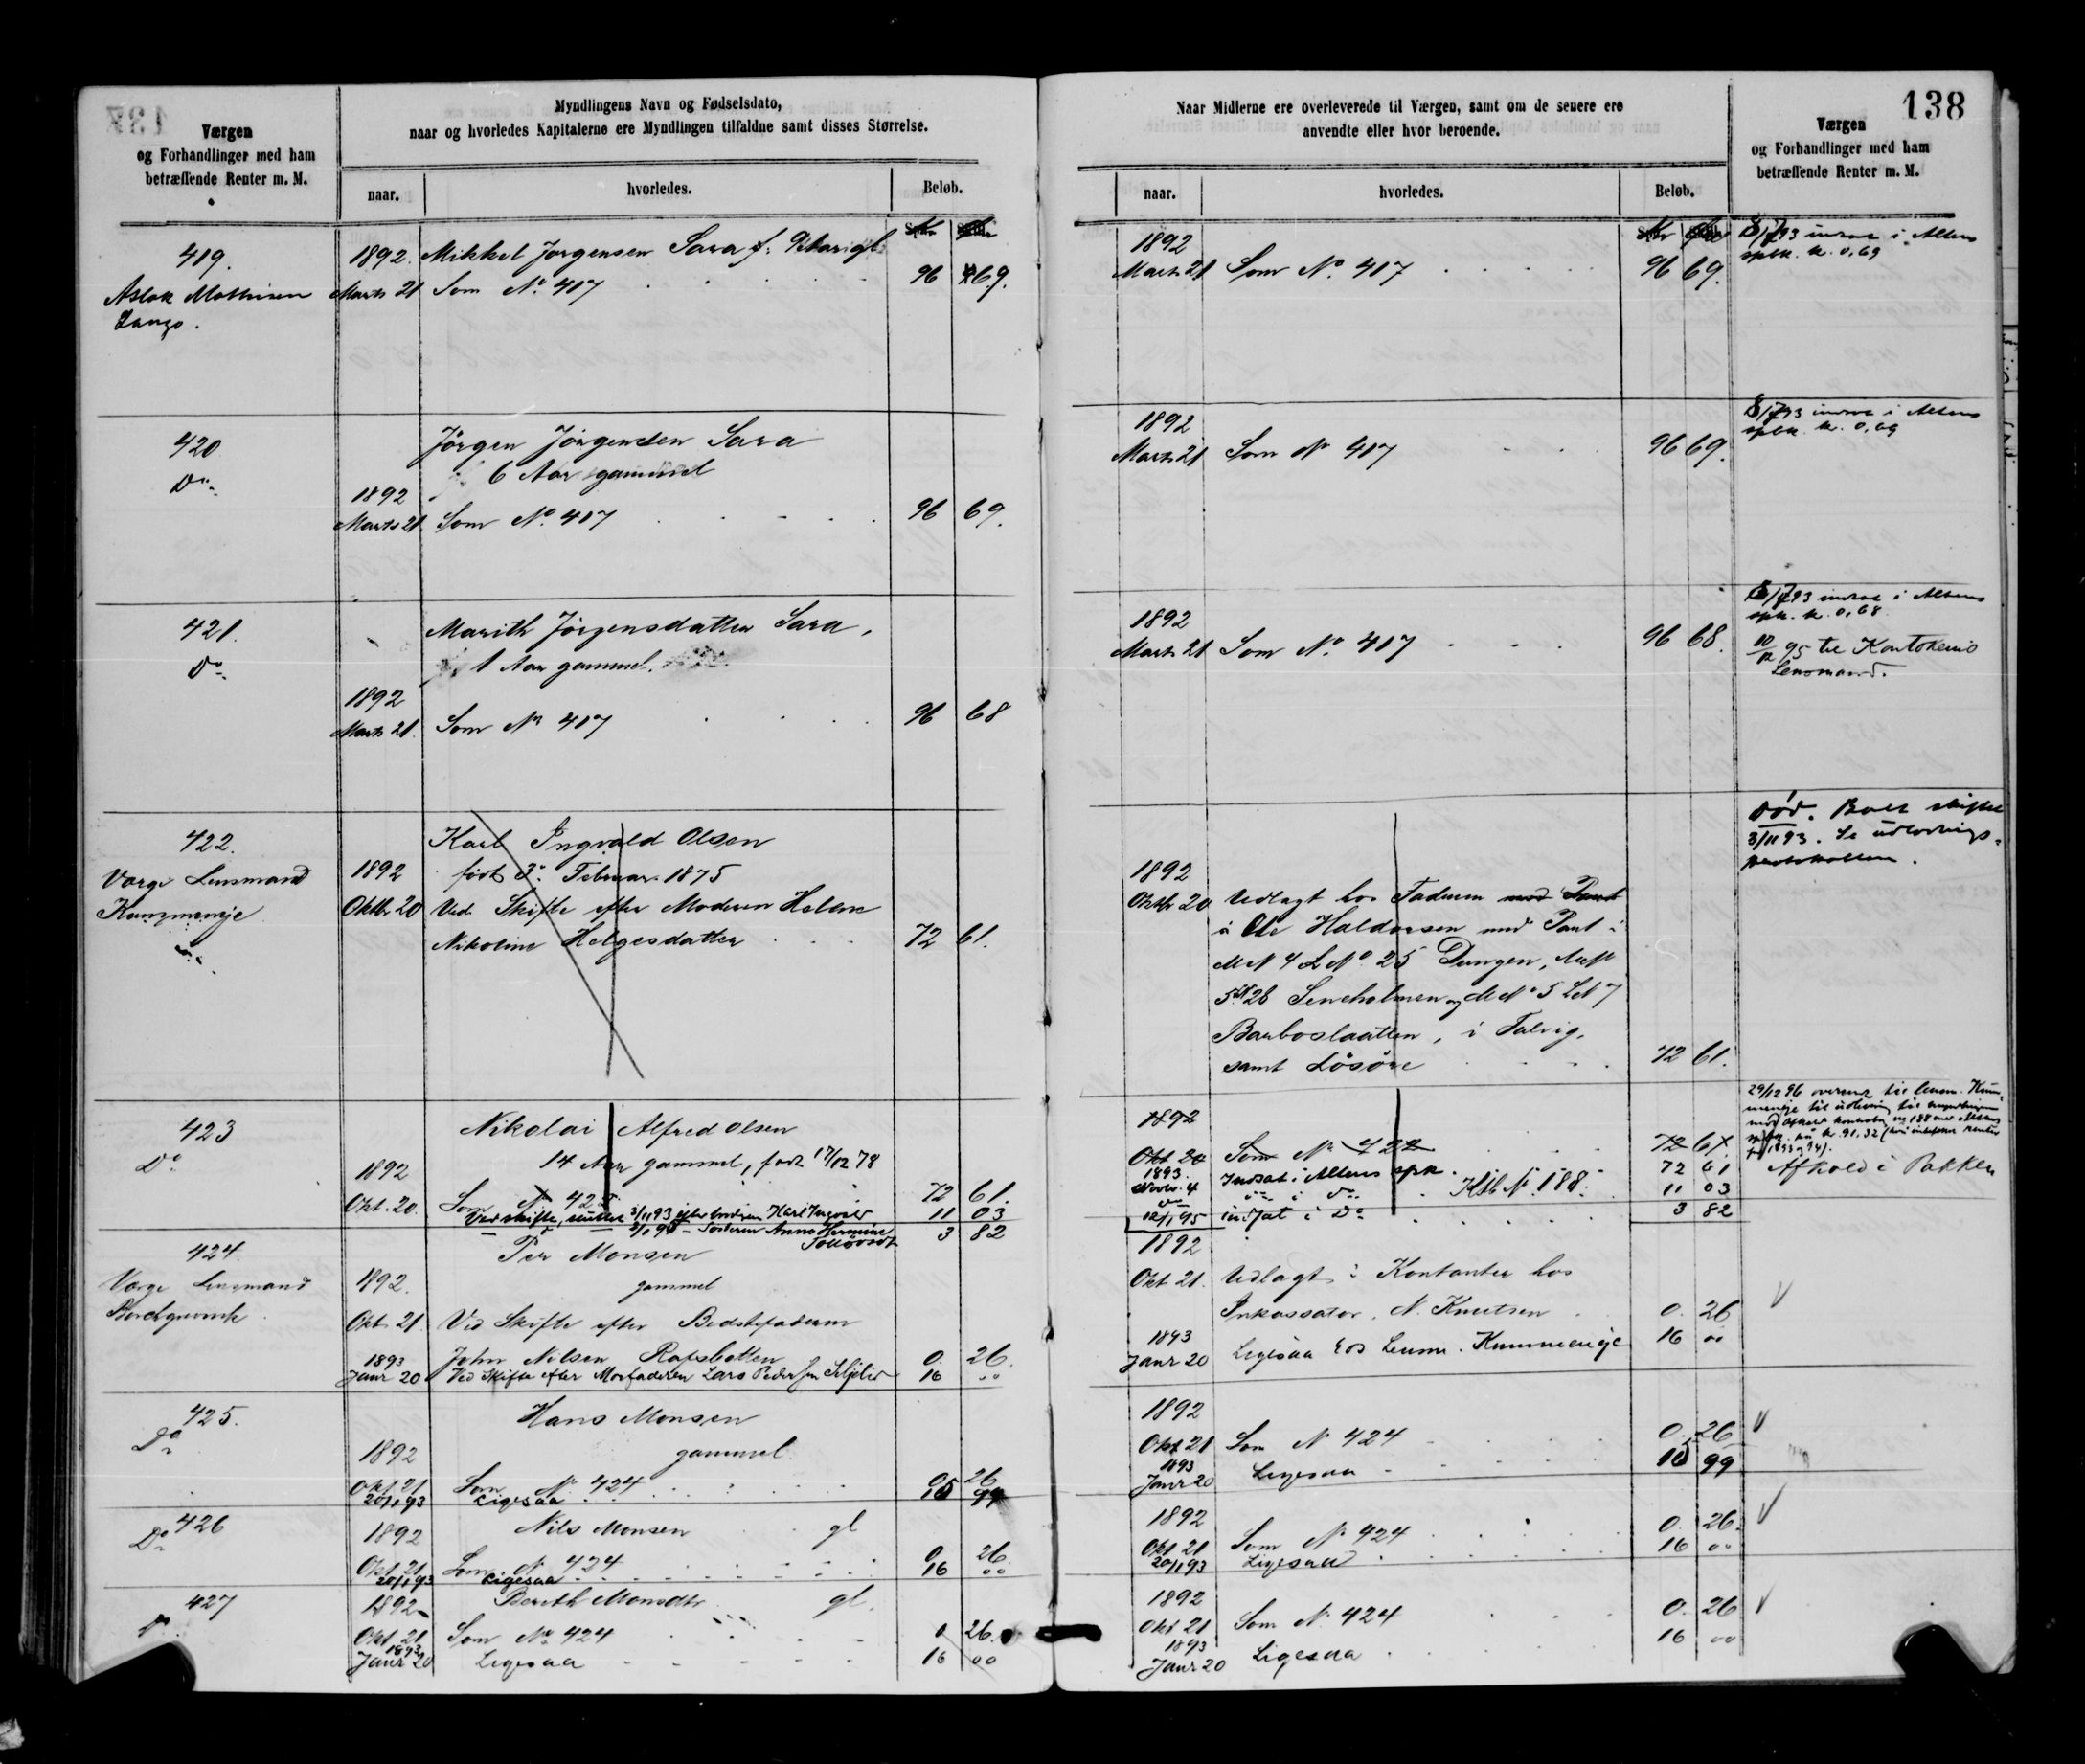 138
Værgen
og Forhandlinger med ham
betræffende Renter m. M.
Myndlingens Navn og Fødselsdato,
naar og hvorledes Kapitalerne ere Myndlingen tilfaldne samt disses Størrelse.
naar.
hvorledes.
Beløb.
Naar Midlerne ere overleverede til Værgen, samt om de senere ere
anvendte eller hvor beroende.
naar.
hvorledes.
Beløb.
Værgen
og Forhandlinger med ham
betræffende Renter m. M.
419.
Aslak Mathisen
1892. Mikkel Jørgensen Sara
Marts 21 Som No. 417 96 69.
1892
Marts 21 Som No. 417 96 69.
i Altens
spbk. kr. 0,69
420
Do
Jörgen Jörgensen Sara
6 Aar gammel
1892
Marts 21 Som No. 417 96 69.
1892
Marts 21 Som No 417 96 69.
i Altens
spbk. kr. 0,69
421.
Do
Marith Jörgensdatter Sara,
1 Aar gammel.
1892
Marts 21. Som No 417 96 68
1892
Marts 21 Som No. 417 96 68.
i Altens
spk. kr. 0,68
95 til Kautokeino
Lensmand.
422.
Værge Lensmand
Karl Ingvald Olsen
1892 født 3. Februar 1875
Oktbr 20 Ved Skifte efter Moderen Helene
Nikoline Helgesdatter 72 61.
1892
Oktbr 20 Udlagt hos Faderen med Pant
Ole Haldorsen med Pant i
M No 4 L No. 25
28 og M No 5 L No 7
i Talvig,
samt Lösöre 72 61.
död. Boet skiftet
3/11 93. Se udlodnings-
protokollen.
423
Do
Nikolai Alfred Olsen
14 Aar gammel, født 17/12 78
1892
Okt. 20. Som No 422 72 61.
Ved skifte, sluttet 3/11 93 efter broderen Karl Ingvald 11 03
Søsteren Anna Hermine 3 82
1892
Okt 20 Som No 422 72 61.
1893
Novbr. 4 Indsat i Altens spk. 72 61
Do i Do Ktb No. 188. 11 03
12/1 95 indsat i Do 3 82
29/12 96
kr. 91,32
Afkald i Pakken
424.
Værge Lensmand
Per Monsen
1892. gammel
Okt. 21. Ved Skifte efter Bedstefaderen
John Nilsen 0. 26.
1893
Janr 20 Ved Skifte efter Morfaderen Lars Pedersen 16 00
1892
Okt 21. Udlagt i Kontanter hos
Inkassator N. Knutsen 0. 26
1893
Janr 20 Ligesaa hos Lensm. 16 00
425.
Do
Hans Monsen
1892 gammel
Okt. 21 Som No 424 0 26
20/1 93 Ligesaa 15 99
1892
Okt 21 Som No 424 0. 26
1893
Janr 20 Ligesaa 15 99
426
Do
1892 Nils Monsen gl
Okt. 21 Som No 424 0 26.
20/1 93 Ligesaa 16 00
1892
Okt 21 Som No 424 0. 26.
20/1 93 Ligesaa 16 00
427
Do
1892 Bereth Monsdtr gl.
Okt. 21 Som No. 424 0 26.
1893
Janr 20 Ligesaa 16 00
1892
Okt 21 Som No 424 0. 26
1893
Janr 20 Ligesaa 16 00